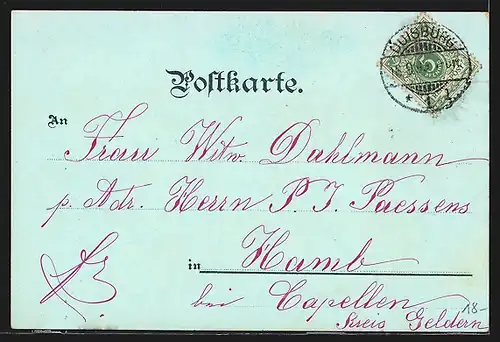 DUISBURG
* 1
Postkarte.
An
Frau Witw. Dahlmann
p. Adr. Herrn P. J. Paessens
in Hamb
bei Capellen
Kreis Geldern
18-